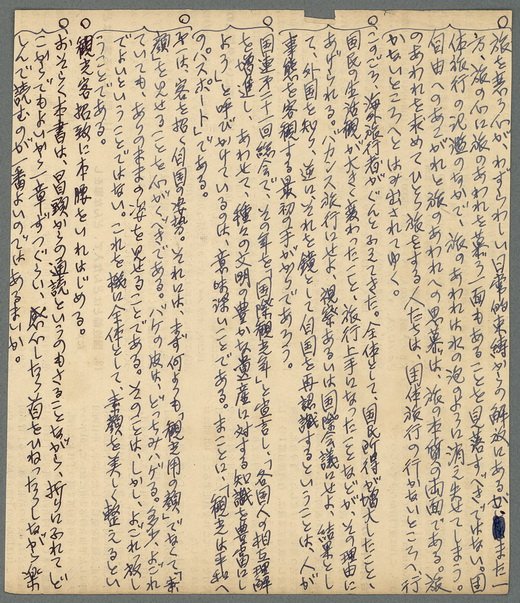 旅を慕う心がわずらわしい日常的束縛からの解放にあるが、また一
方、旅の心に旅のあわれを慕う一面もあることを見落すべきではない。団
体旅行の氾濫のなかで、旅のあわれは水の泡のように消え失せてしまう。
自由へのあこがれと旅のあわれへの思慕は、旅の本質の両面である。旅
のあわれを求めてひとり旅をする人たちは、団体旅行の行かないところへ行
かないところへとはみ出されてゆく。
○このごろ、海外旅行者がぐんとふえてきた。全体として、国民所得が増大したこと、
国民の生活観が大きく変わったこと、旅行上手になったことなどが、その理由に
あげられる。バカンス旅行にせよ、視察あるいは国際会議にせよ、結果とし
て、外国を知り、逆に、それを鏡として自国を再認識するということは、人が
事態を客観する最初の手がかりであろう。
○国連第二十一回総会で、その年を「国際観光年」と宣言し、「各国人の相互理解
を増進し、あわせて、種々の文明の豊かな遺産に対する知識を豊富にし
よう」と呼びかけているのは、意味深いことである。まことに、「観光は平和へ
のパスポート」である。
○では、客を招く自国の姿勢。それには、まず何よりも「観光用の顔」でなくて「素
顔」を見せることを心がくべきである。バケの皮は、どっちみちハゲる。多少、よごれ
ていても、ありのままの姿を見せることである。そのことは、しかし、よごれっ放し
でよいということではない。これを機に全体として、素顔を美しく整えるとい
うことである。
○観光客招致に本腰をいれはじめる。
○おそらく本書は、冒頭からの通読というのもさることながら、折りにふれてど
こからでもよいから一章ずつぐらい、感心したり首をひねったりしながら、楽
しんで読むのが一番よいのではあるまいか。